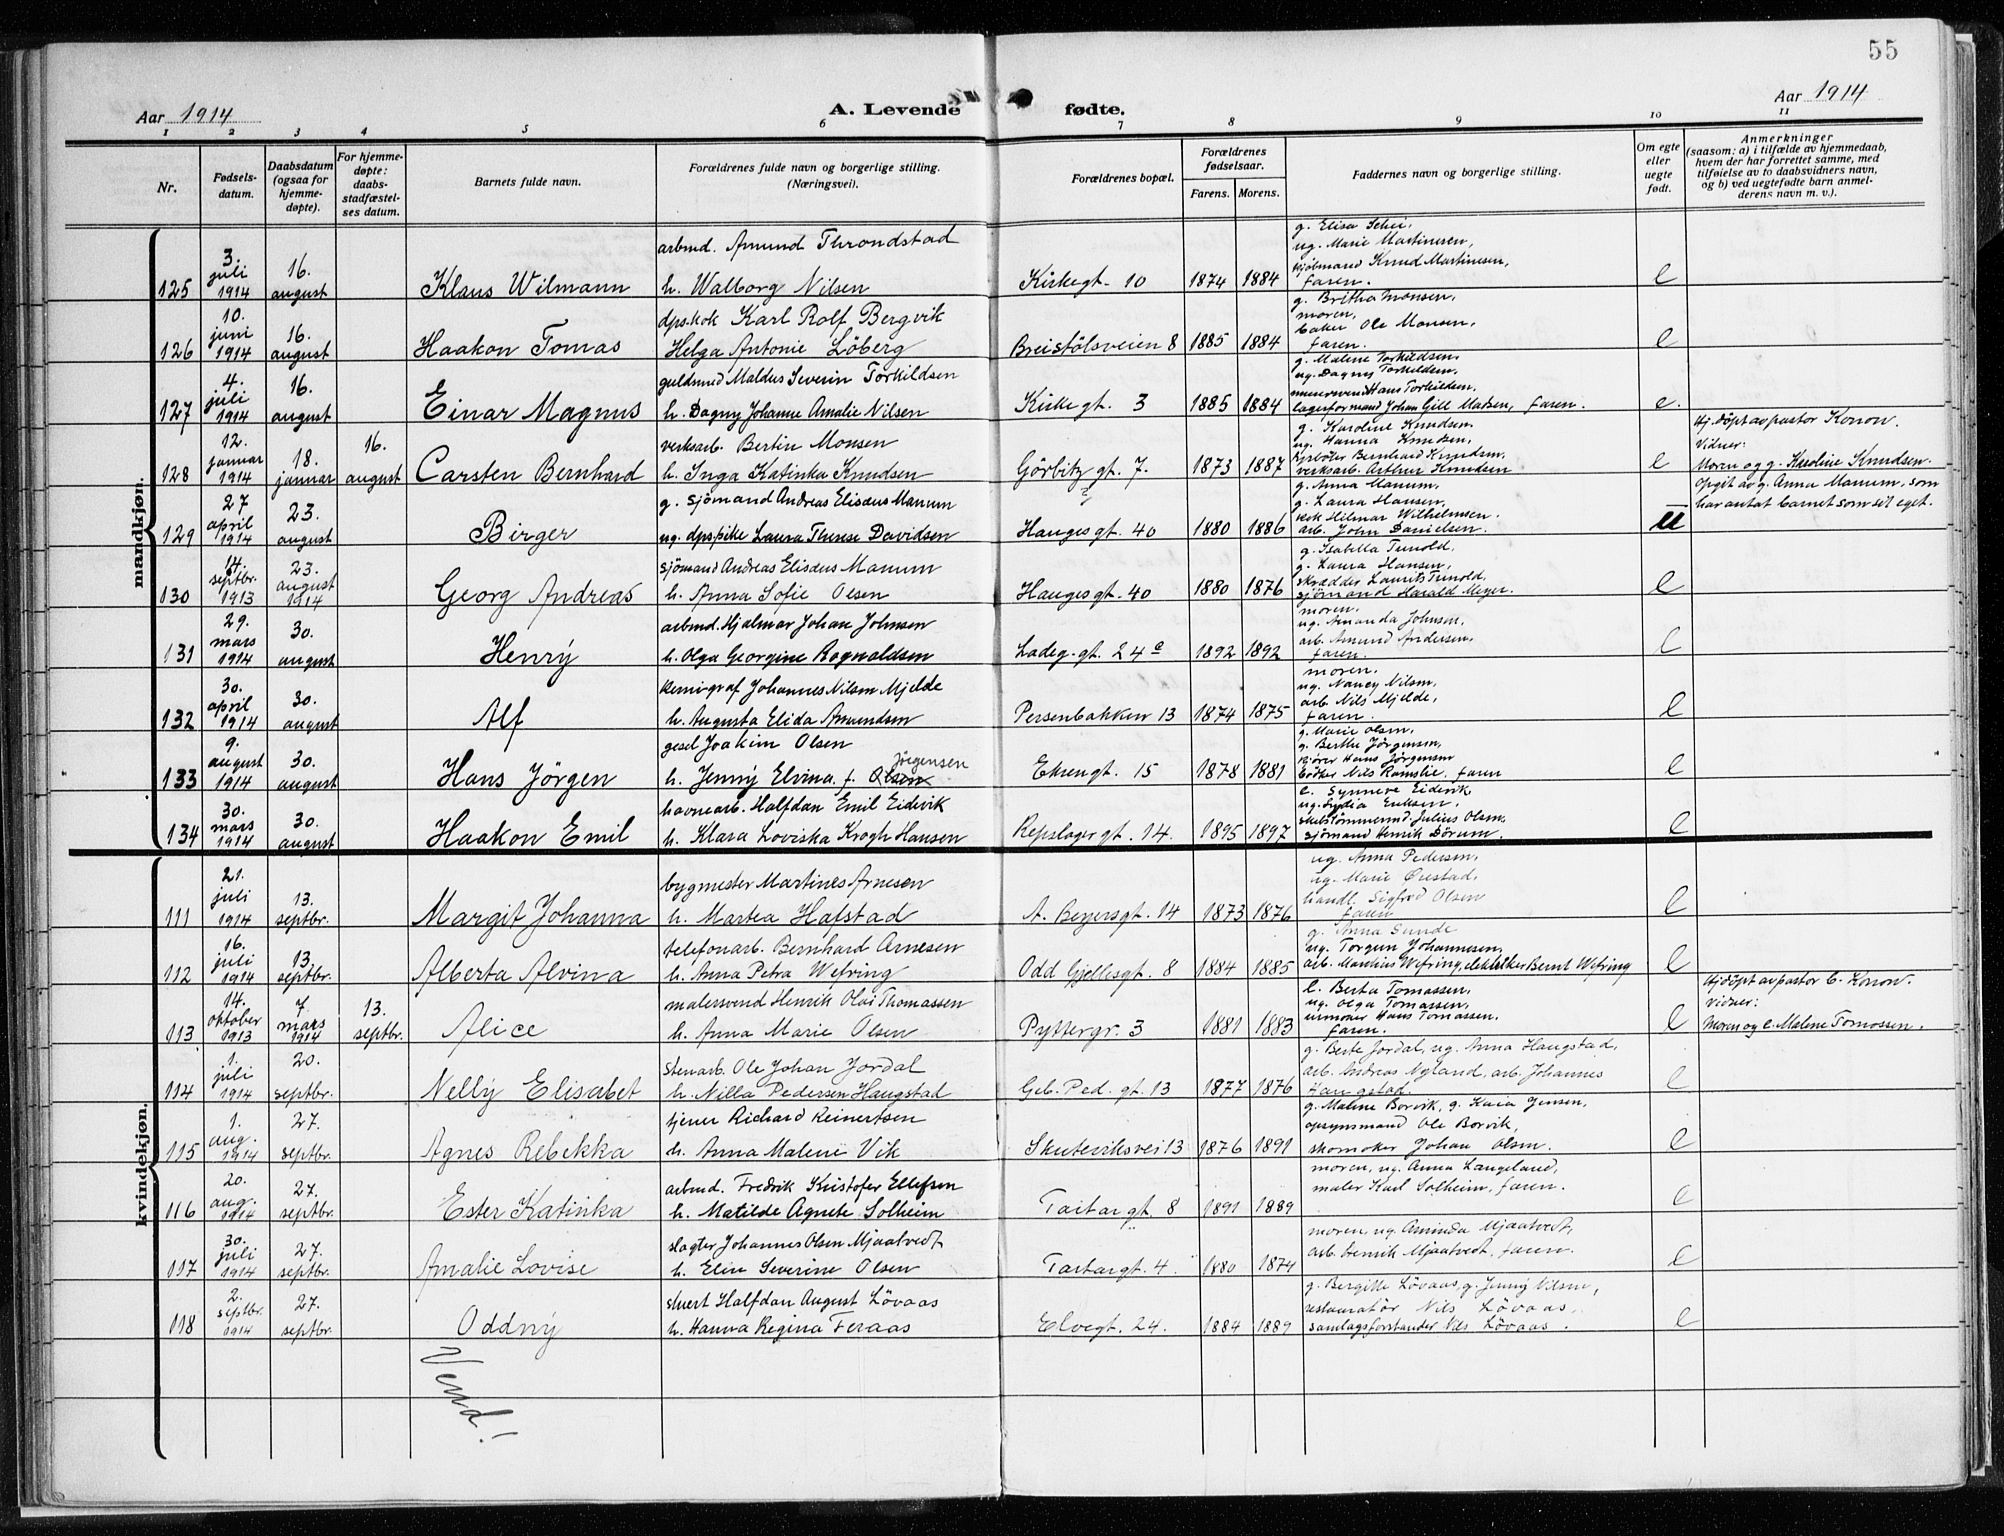 55
Aar 1914
A. Levende fødte.
Aar 1914
1 2 3 4 5 6 7 8 9 10 11
Nr.
Fødsels-
datum.
Daabsdatum
(ogsaa for
hjemme-
døpte).
For hjemme-
døpte:
daabs-
stadfæstel-
ses datum.
Barnets fulde navn.
Forældrenes fulde navn og borgerlige stilling.
(Næringsvei).
Forældrenes bopæl.
Forældrenes
fødselsaar.
Farens. Morens.
Faddernes navn og borgerlige stilling.
Om egte
eller
uegte
født.
Anmerkninger
(saasom: a) i tilfælde av hjemmedaab,
hvem der har forrettet samme, med
tilføielse av to daabsvidners navn,
og b) ved uegtefødte barn anmel-
derens navn m. v.).
mandkjøn.
125
3.
juli
1914
16.
august
Klaus Wilmann
arbmd. Amund Throndstad
h. Walborg Nilsen
Kirkegt. 10
1874 1884
g. Elisa Schei,
ug. Marie Martinesen,
kjøbmand Knud Martinesen,
faren.
e
126
10.
juni
1914
16.
august
Haakon Tomas
dps.kok Karl Rolf Bergvik
Helga Antonie Löberg
Breistölsveien 8
1885 1884
g. Britha Monsen,
moren,
baker Ole Monsen,
faren.
e
127
4.
juli
1914
16.
august
Einar Magnus
guldsmed Maldus Severin Torkildsen
h. Dagny Johanne Amalie Nilsen
Kirkegt. 3
1885 1884
g. Malene Torkildsen,
ug. Dagnes Torkildsen,
murersvend Hans Torkildsen,
lagerformand Johan Gill Madsen, faren.
e.
128
12.
januar
1914
18.
januar
16.
august
Carsten Bernhard
verksarb. Bertin Monsen
h. Inga Katinka Knudsen
Görbitz gt. 7.
1873 1887
g. Karoline Knudsen,
ug. Hanna Knudsen,
Bernhard Knudsen,
verksarb. Arthur Knudsen
e
Hj.döpt av pastor Konow.
Vidner:
Moren og g. Karoline Knudsen.
129
27
april
1914
23.
august
Birger
g. sjömand Andreas Elisæus Manum
ug. dps.pike Laura Therese Davidsen
Haugesgt. 40
1880 1886
g. Anna Manum,
g. Laura Hansen,
kok Hilmar Wilhelmsen,
arb. John Danielsen.
u
Opgit av g. Anna Manum, som
har antat barnet som sit eget.
130
14.
septbr.
1913
23.
august
1914
Georg Andreas
sjömand Andreas Elisæus Manum
h. Anna Sofie Olsen
Haugesgt. 40
1880 1876
g. Isabella Tunold,
g. Laura Hansen,
skrædder Laurits Tunold,
sjömand Harald Meyer.
e
131
29.
mars
1914
30.
august
Henrÿ
arbmd. Hjalmar Johan Johnsen
h. Olga Georgine Ragnvaldsen
Ladeg.gt. 24 c
1892 1892
moren,
ug. Amanda Johnsen,
arb. Amund Andersen,
faren.
e
132
30.
april
1914
30.
august
Alf
kemigraf Johannes Nilsen Mjelde
h. Augusta Elida Amundsen
Persenbakken 13
1874 1875
moren,
ug. Nancy Nilsen,
arb. Nils Mjelde,
faren.
e
133
9.
august
1914
30.
august
Hans Jörgen
gesel Joakim Olsen
h. Jennÿ Elvina f. Olsen Jörgensen
Ekrengt. 15
1878 1881
g. Marie Olsen,
g. Berthe Jörgensen,
Hans Jörgensen
bödker Nils Ramslie, faren
e
134
30.
mars
1914
30.
august
Haakon Emil
havnearb. Halfdan Emil Eidevik
h. Klara Loviska Krogh Hansen
Repslagergt. 14.
1895 1897
e. Synneve Eidevik,
ug. Lydia Eriksen,
skibstömmermd. Julius Olsen,
sjömand Henrik Dörum.
e
kvindekjøn.
111
21.
juli
1914
13.
septbr.
Margit Johanna
bygmester Martines Arnesen
h. Martea Hafstad
A. Beyersgt. 14
1873 1876
ug. Anna Pedersen,
ug. Marie Örestad,
handl. Sigfred Olsen
faren
e
112
16.
juli
1914
13.
septbr.
Alberta Alvina
telefonarb. Bernhard Arnesen
h. Anna Petra Wefring
Odd Gjellesgt. 8
1884 1885
g. Anna Sunde
ug. Torgun Johannesen,
arb. Mandius Wefring, elektriker Bernt Wefring
e
113
14.
oktober
1913
7
mars
1914
13.
septbr.
Alice
malersvend Henrik Olai Thomassen
h. Anna Marie Olsen
Pyttergr. 3
1881 1883
e. Berta Tomassen,
ug. Olga Tomassen,
urmaker Hans Tomassen,
faren.
e
Hjdöpt av pastor C. Konow.
Vidner:
Moren og e. Malene Tomassen.
114
1.
juli
1914
20.
septbr.
Nellÿ Elisabet
stenarb. Ole Johan Jordal
h. Nilla Pedersen Haugstad
Geb. Ped. gt. 13
1877 1876
g. Berte Jordal, ug. Anna Haugstad,
arb. Andreas Nyland, arb. Johannes
Haugstad.
e
115
1.
aug.
1914
27.
septbr.
Agnes Rebekka
tjener Richard Reinertsen
h. Anna Malene Vik
Skuteviksvei 13
1876 1891
g. Malene Borvik, g. Kaia Jensen,
opsynsmand Ole Borvik,
skomaker Johan Olsen.
e
116
20.
aug.
1914
27.
septbr.
Ester Katinka
arbmd. Fredrik Kristofer Ellefsen
h. Matilde Agnete Solheim
Tartargt. 8
1891 1889
moren, ug. Anna Langeland,
maler Karl Solheim, faren.
e
117
30.
juli
1914
27.
septbr.
Amalie Lovise
slagter Johannes Olsen Mjaatvedt
h. Elin Severine Olsen
Tartargt. 4.
1880 1874
moren, ug. Aminda Mjaatvedt,
arb. Henrik Mjaatvedt, faren.
e
118
2.
septbr.
1914
27.
septbr.
Oddnÿ
stuert Halfdan August Lövaas
h. Hanna Regina Feraas
Elvegt. 24.
1884 1889
g. Bergitte Lövaas, g. Jenny Nilsen,
restauratör Nils Lövaas,
samlagsforstander Nils Lövaas.
e
Vend!